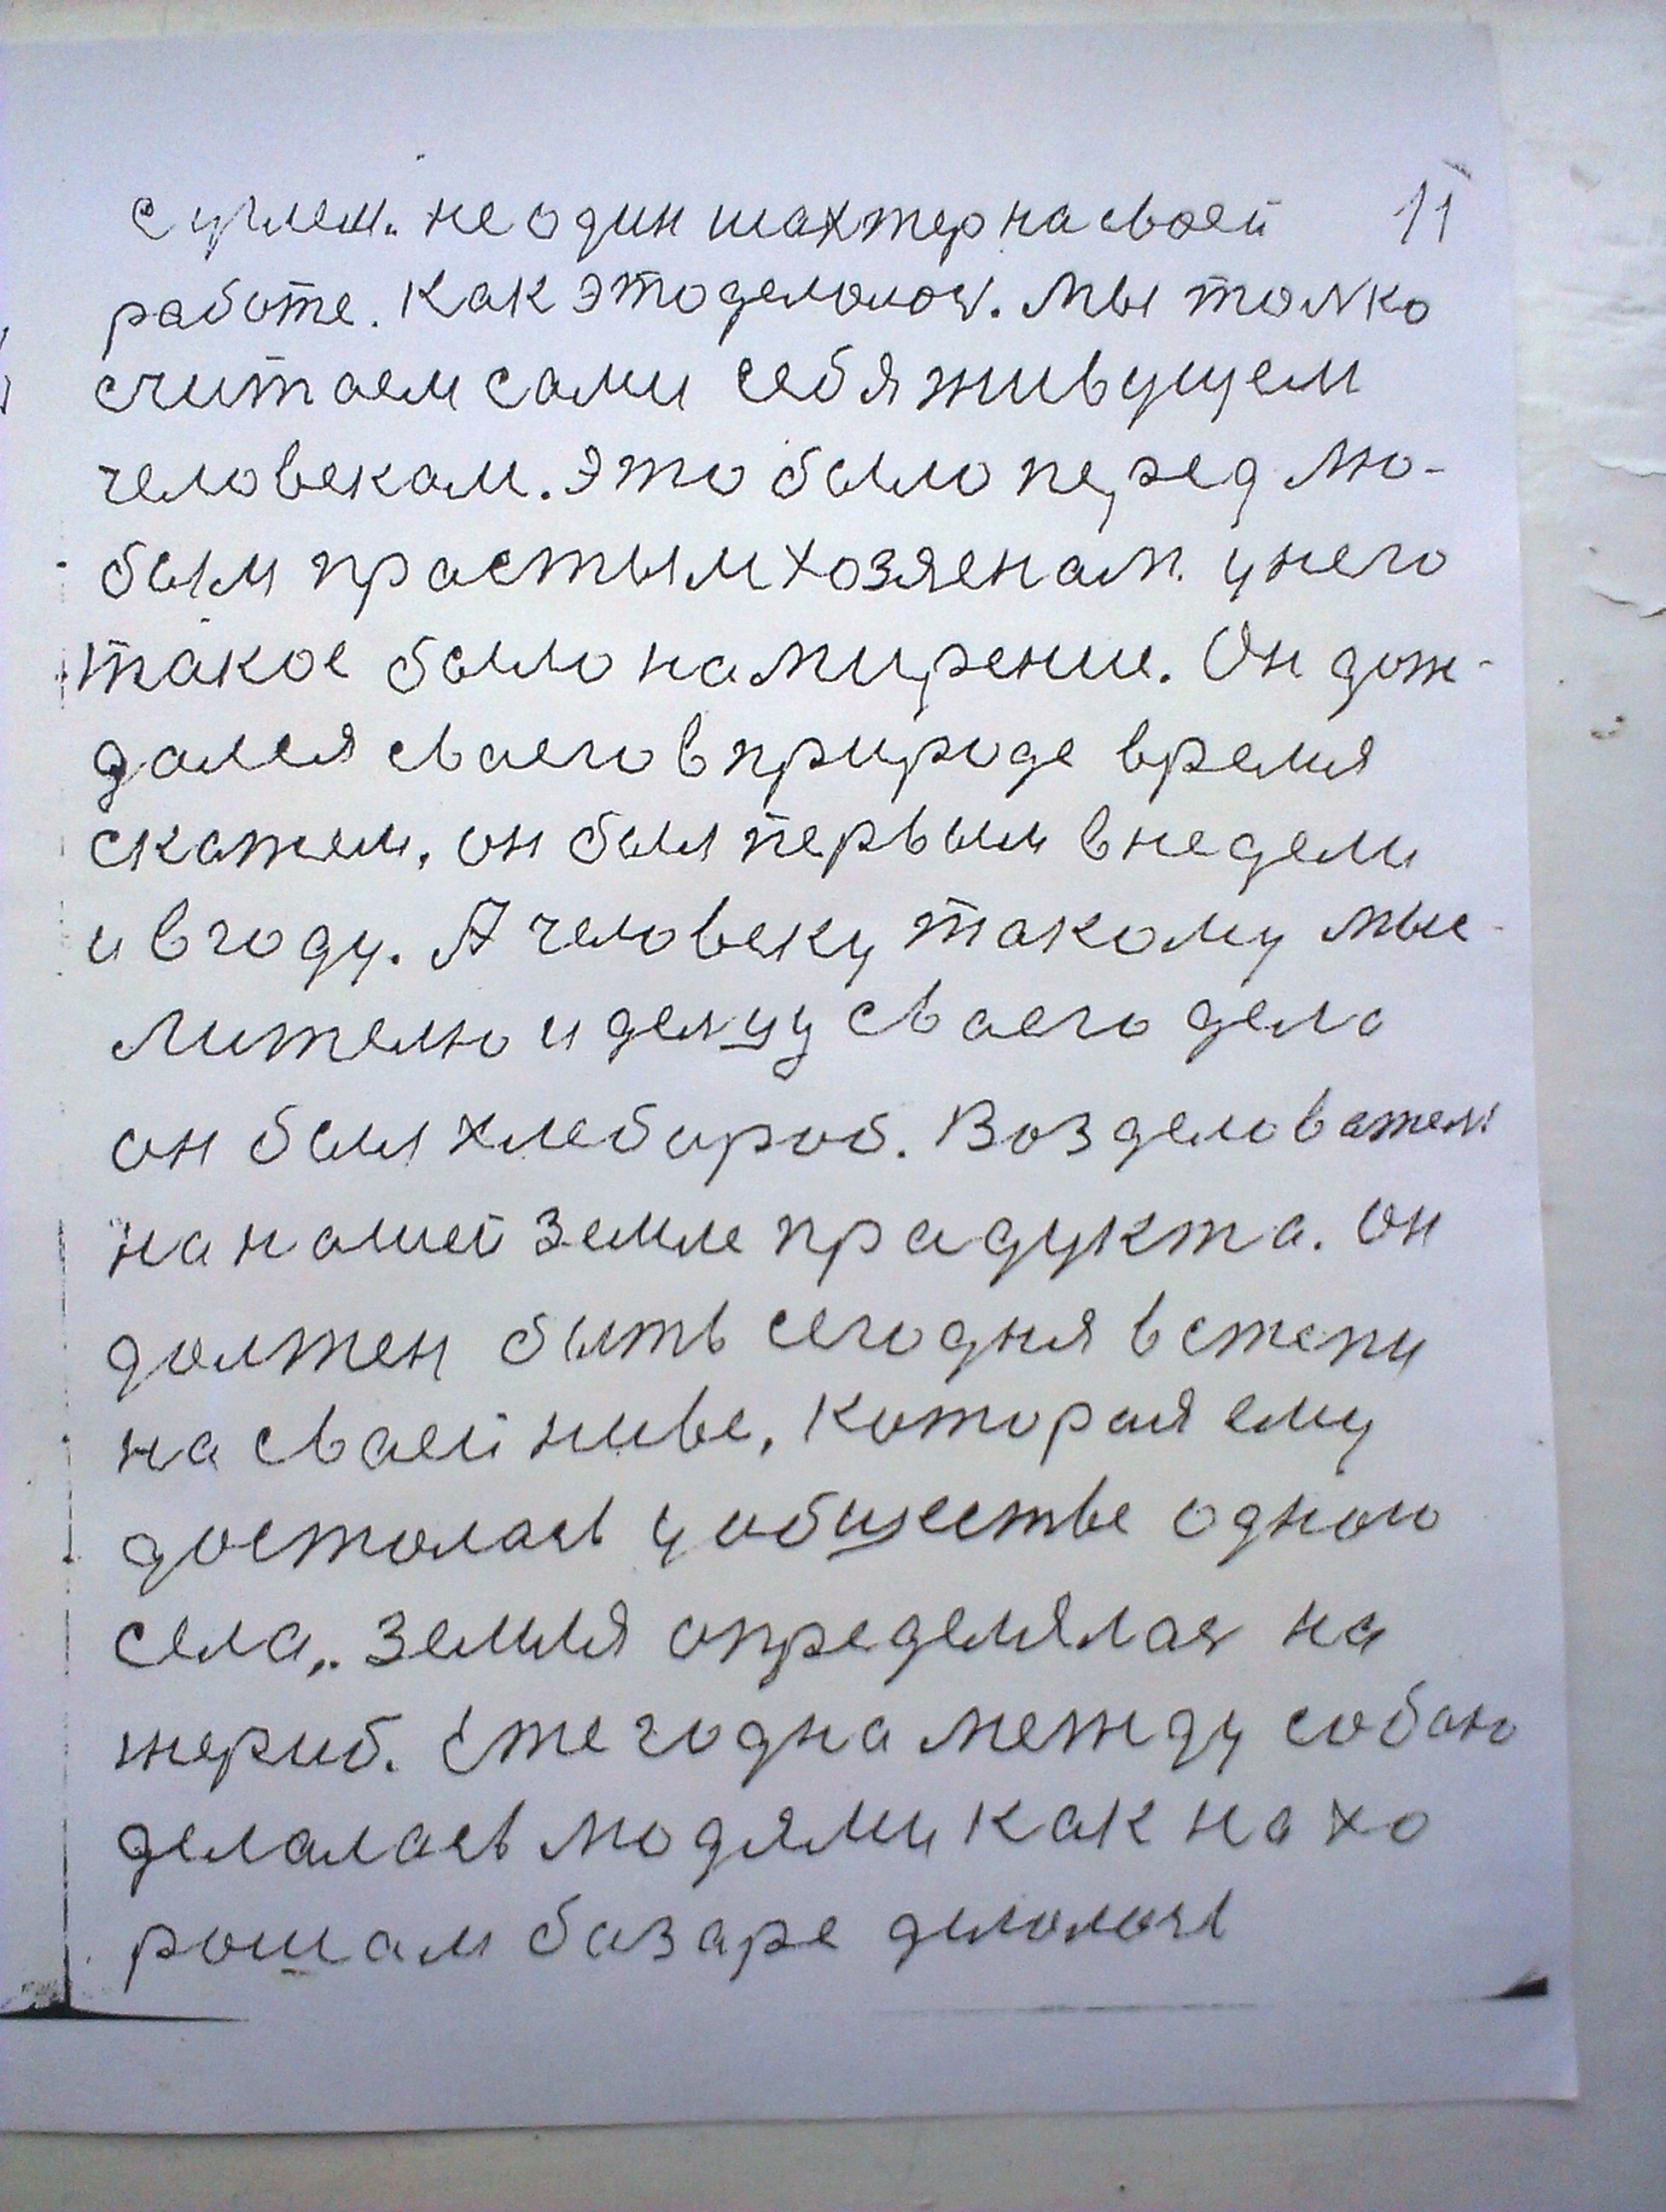 с углем. не один шахтер на своей 11
работе. Как это делолось. Мы толко
считаем сами себя живущем
человекам. Это было перед лю-
бым прастым хозяенам. у него
такое было намирение. Он дож-
дался сваего в природе время
скажем, он был первым в недели
и в году. А человеку такому мыс-
лителю и делцу сваего дела
он был хлебороб. Возделователь
на нашей земле прадукта. Он
должен быть сегодня в степи
на сваей ниве, которая ему
досталась у обществе одного
села,. Земля определялась на
жериб. Ежегодна между собою
делалась людями как на хо
рошам базаре делолось